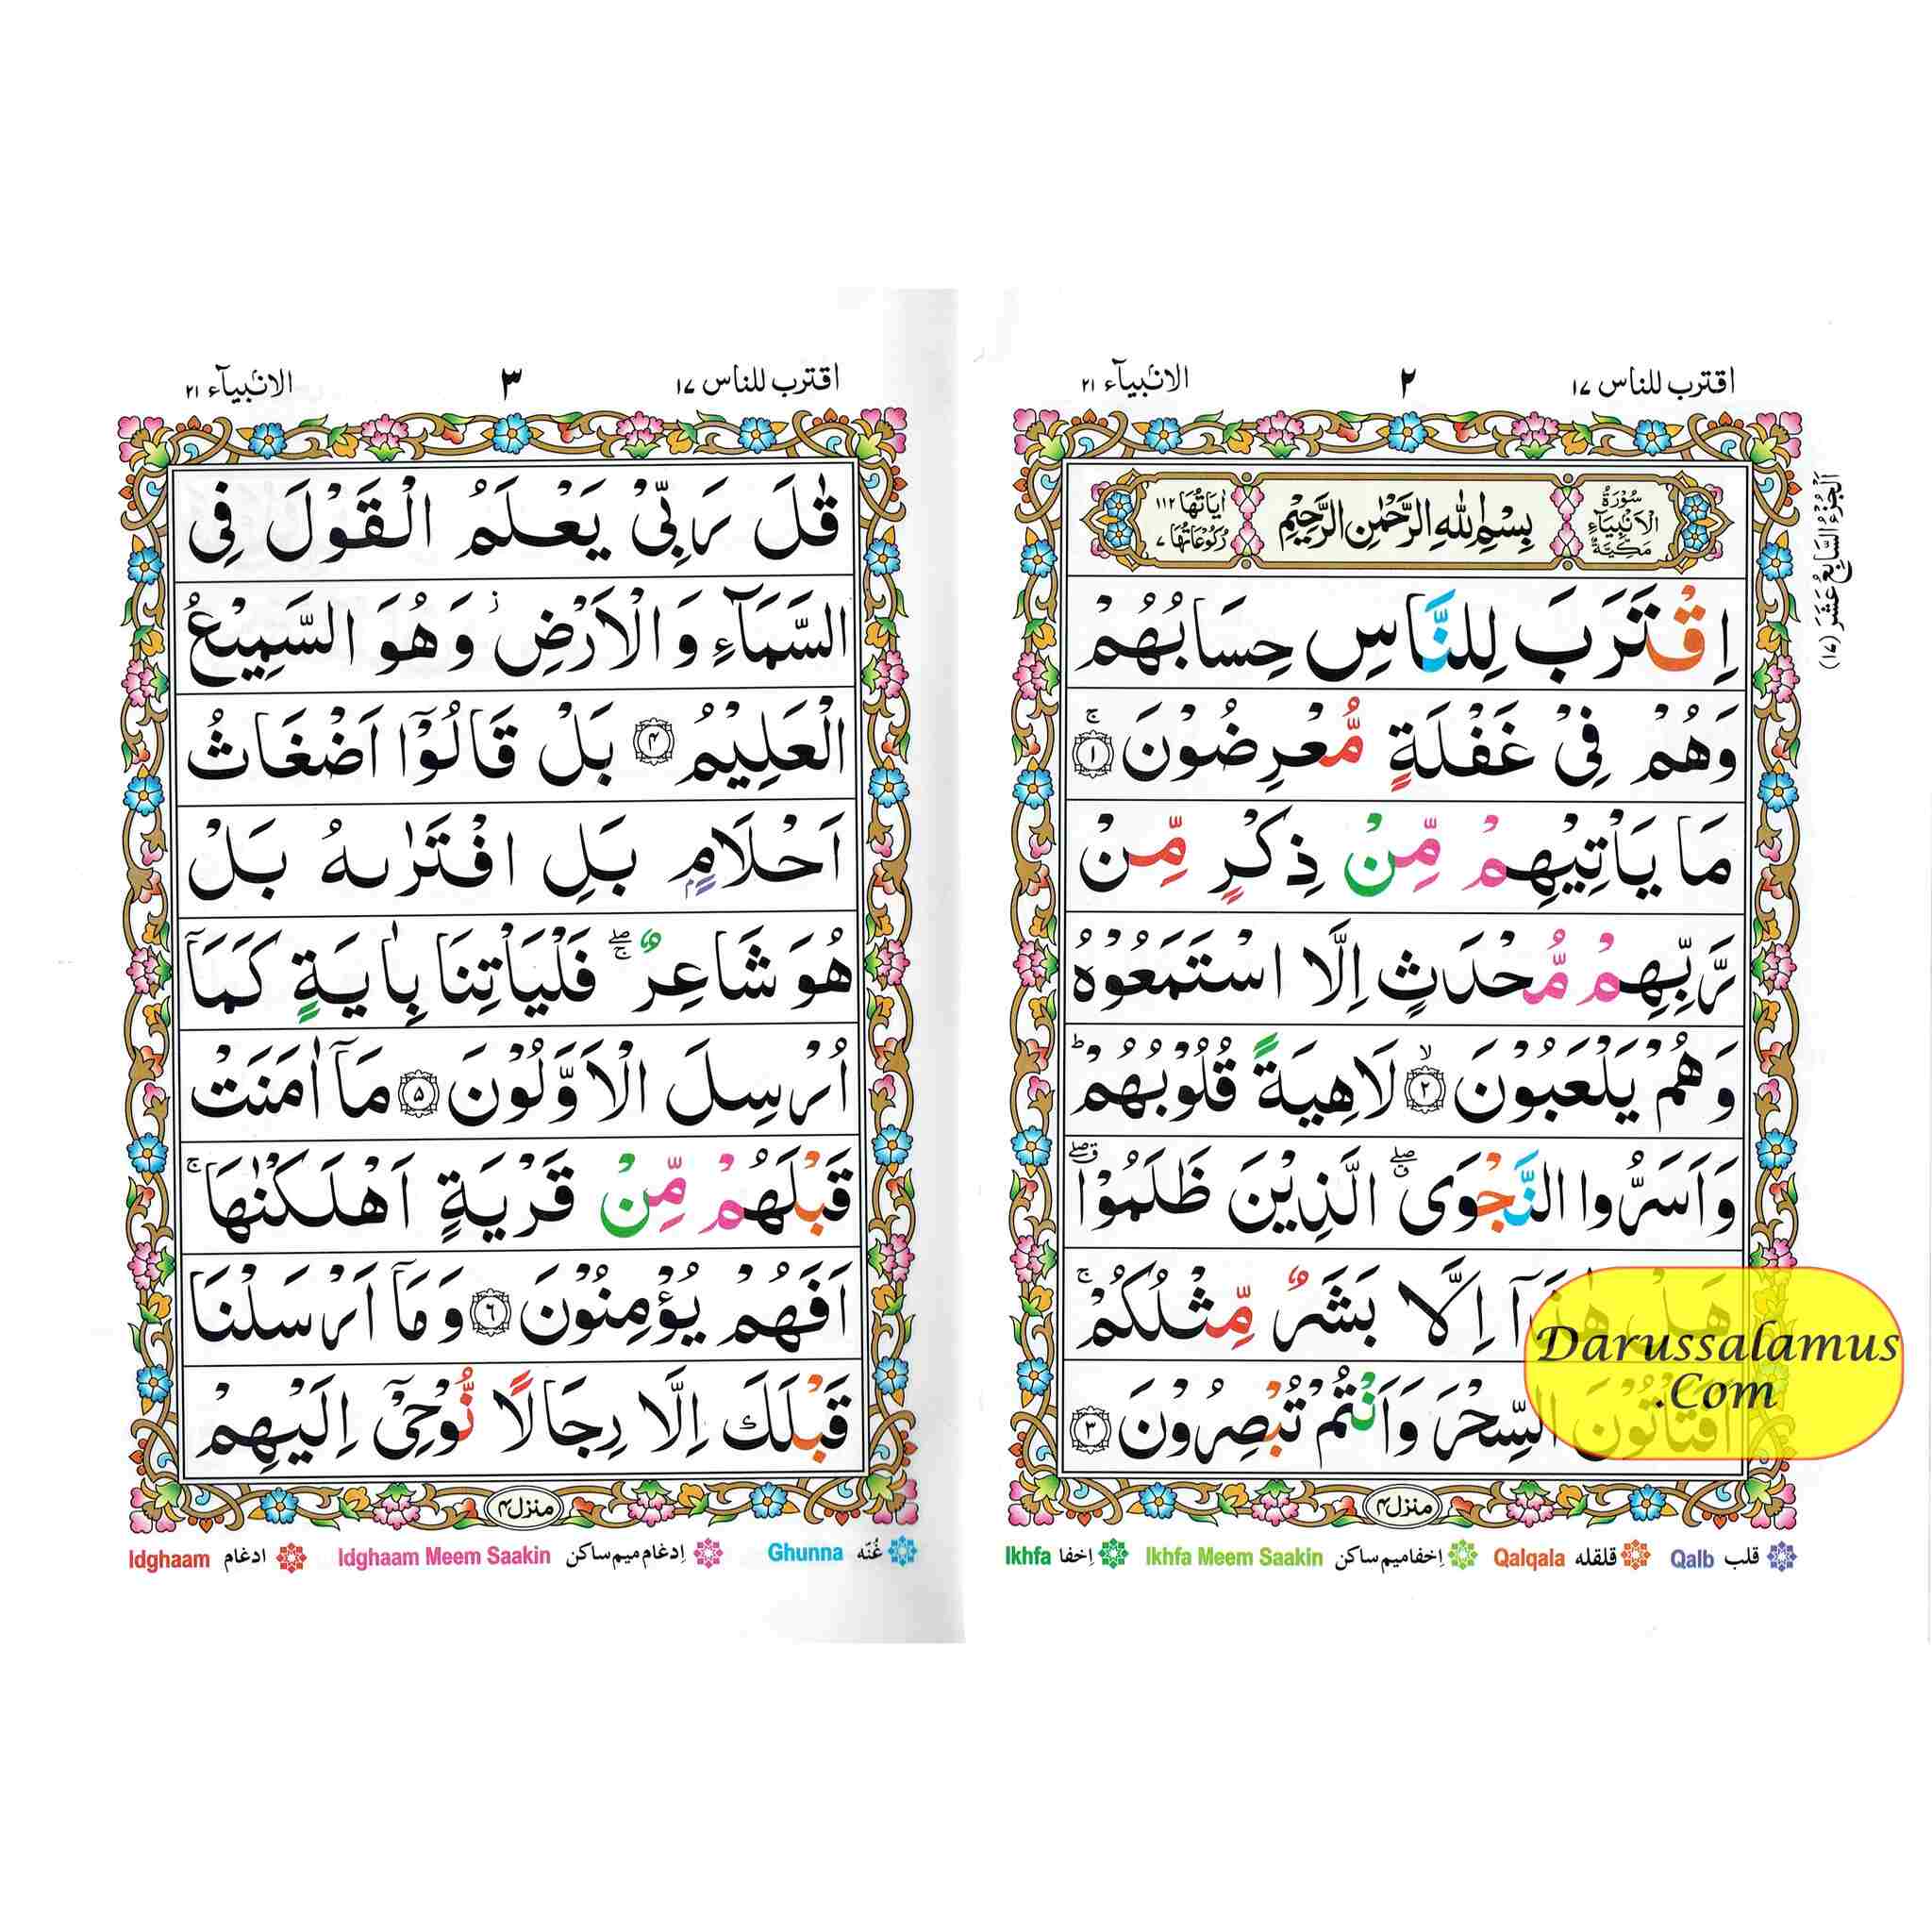 اقترب للناس ١٧
٢
الانبیآء ٢١
اَلْجُزْءُ السَّابِعُ عَشَرَ (١٧)
سُوْرَةُ الْاَنْبِيَآءِ مَكِّيَّةٌ
بِسْمِ اللهِ الرَّحْمٰنِ الرَّحِيْمِ
اٰيَاتُهَا ١١٢
رُكُوْعَاتُهَا ٧
اِقْتَرَبَ لِلنَّاسِ حِسَابُهُمْ
وَهُمْ فِيْ غَفْلَةٍ مُّعْرِضُوْنَ ۚ ١
مَا يَاْتِيْهِمْ مِّنْ ذِكْرٍ مِّنْ
رَّبِّهِمْ مُّحْدَثٍ اِلَّا اسْتَمَعُوْهُ
وَهُمْ يَلْعَبُوْنَ ۙ ٢ لَاهِيَةً قُلُوْبُهُمْ ؕ
وَاَسَرُّوا النَّجْوَى ۖۗ الَّذِيْنَ ظَلَمُوْا ۖۗ
هَلْ هٰذَآ اِلَّا بَشَرٌ مِّثْلُكُمْ ۚ
اَفَتَاْتُوْنَ السِّحْرَ وَاَنْتُمْ تُبْصِرُوْنَ ٣
منزل ٤
Darussalamus
.Com
قلب Qalb
قلقله Qalqala
اِخفا میم ساکن Ikhfa Meem Saakin
اِخفا Ikhfa
اقترب للناس ١٧
٣
الانبیآء ٢١
قٰلَ رَبِّيْ يَعْلَمُ الْقَوْلَ فِي
السَّمَآءِ وَالْاَرْضِ ز وَهُوَ السَّمِيْعُ
الْعَلِيْمُ ٤ بَلْ قَالُوْٓا اَضْغَاثُ
اَحْلَامٍۭ بَلِ افْتَرٰىهُ بَلْ
هُوَ شَاعِرٌ ۖۚ فَلْيَاْتِنَا بِاٰيَةٍ كَمَآ
اُرْسِلَ الْاَوَّلُوْنَ ٥ مَآ اٰمَنَتْ
قَبْلَهُمْ مِّنْ قَرْيَةٍ اَهْلَكْنٰهَا ۚ
اَفَهُمْ يُؤْمِنُوْنَ ٦ وَمَآ اَرْسَلْنَا
قَبْلَكَ اِلَّا رِجَالًا نُّوْحِيْٓ اِلَيْهِمْ
منزل ٤
غُنّه Ghunna
اِدغام میم ساکن Idghaam Meem Saakin
ادغام Idghaam